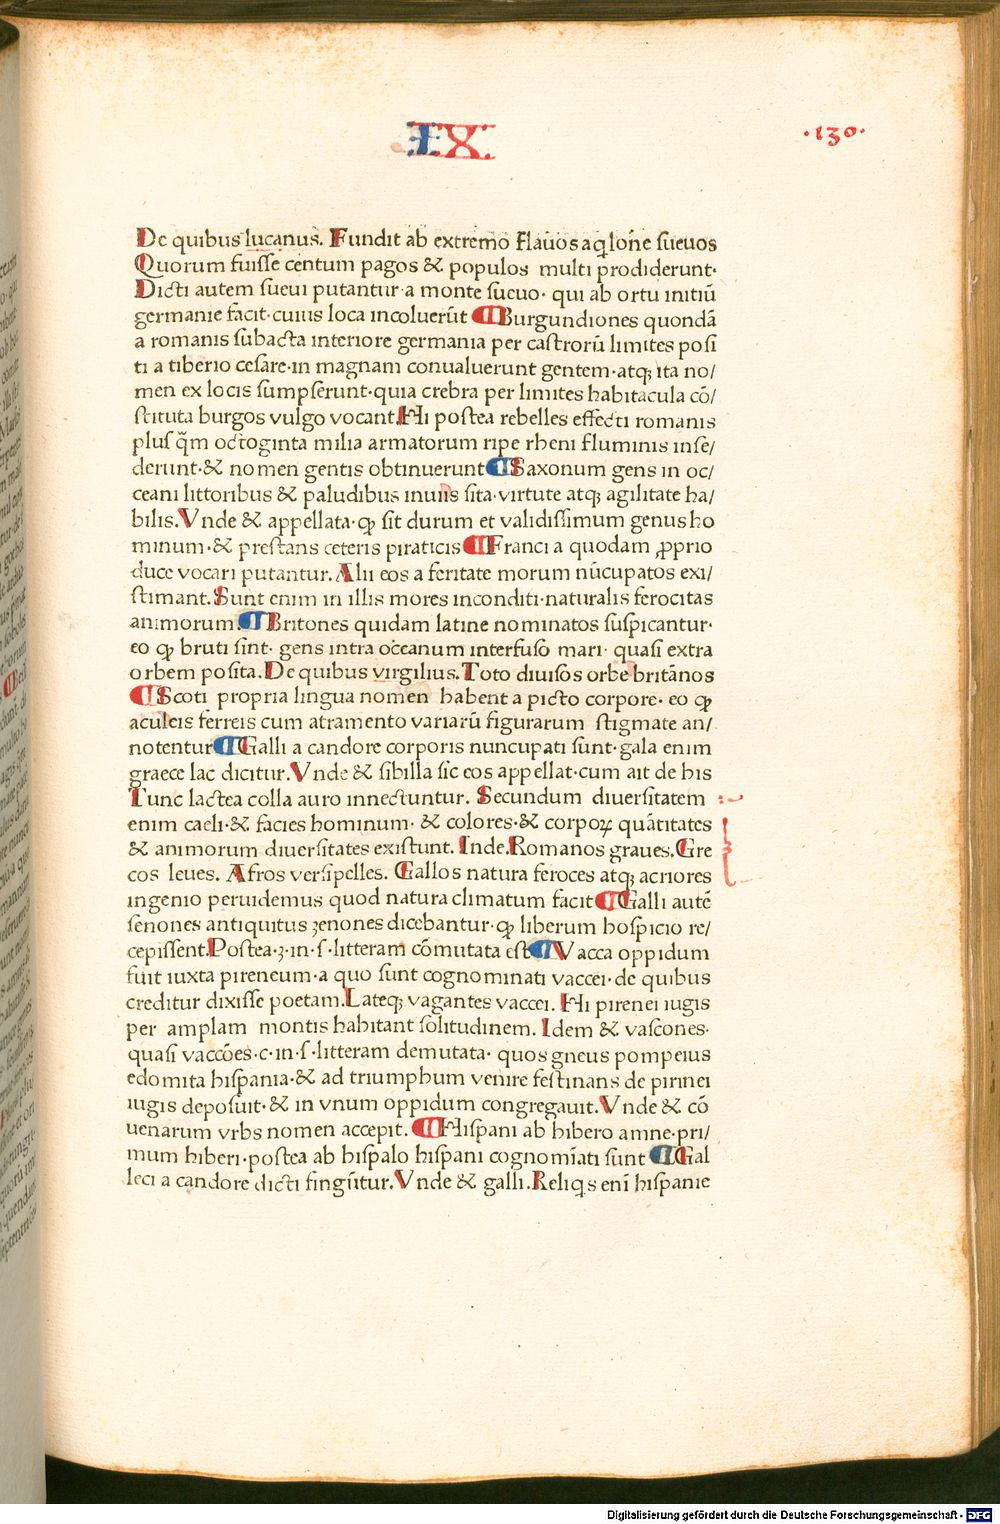 IX
·130·
De quibus lucanus. Fundit ab extremo flauos aq̨lone sueuos
Quorum fuisse centum pagos & populos multi prodiderunt·
Dicti autem sueui putantur·a monte sueuo· qui ab ortu initiū
germanie facit·cuius loca incoluerūt ¶Burgundiones quondā
a romanis subacta interiore germania per castrorū limites posi
ti a tiberio cesare·in magnam conualuerunt gentem·atq; ita no/
men ex locis sumpserunt·quia crebra per limites habitacula cō/
stituta burgos vulgo vocant.Hi postea rebelles effecti romanis
plus q̄m octoginta milia armatorum ripe rheni fluminis inse/
derunt·& nomen gentis obtinuerunt¶Saxonum gens in oc/
ceani littoribus & paludibus inuiis sita·virtute atq; agilitate ha/
bilis.Vnde & appellata·ꝙ sit durum et validissimum genus ho
minum·& prestans ceteris piraticis¶Franci a quodam ꝓprio
duce vocari putantur. Alii eos a feritate morum nūcupatos exi/
stimant.Sunt enim in illis mores inconditi·naturalis ferocitas
animorum.¶Britones quidam latine nominatos suspicantur·
eo ꝙ bruti sint· gens intra occeanum interfuso mari· quasi extra
orbem posita.De quibus virgilius.Toto diuisos orbe britānos
¶Scoti propria lingua nomen habent a picto corpore· eo ꝙ
aculeis ferreis cum atramento variarū figurarum stigmate an/
notentur¶Galli a candore corporis nuncupati sunt·gala enim
graece lac dicitur.Vnde & sibilla sic eos appellat·cum ait de his
Tunc lactea colla auro innectuntur. Secundum diuersitatem
enim caeli·& facies hominum· & colores·& corpoꝝ quātitates
& animorum diuersitates existunt. Inde.Romanos graues.Gre
cos leues. Afros versipelles. Gallos natura feroces atq; acriores
ingenio peruidemus quod natura climatum facit¶Galli autē
senones antiquitus ʒenones dicebantur·ꝙ liberum hospicio re/
cepissent.Postea·ʒ·in·s·litteram cōmutata est¶Vacca oppidum
fuit iuxta pireneum·a quo sunt cognominati vaccei·de quibus
creditur dixisse poetam.Lateq; vagantes vaccei. Hi pirenei iugis
per amplam montis habitant solitudinem. Idem & vascones·
quasi vaccōes·c·in·s·litteram demutata· quos gneus pompeius
edomita hispania·& ad triumphum venire festinans de pirinei
iugis deposuit·& in vnum oppidum congregauit.Vnde & cō
uenarum vrbs nomen accepit. ¶Hispani ab hibero amne·pri/
mum hiberi·postea ab hispalo hispani cognomīati sunt ¶Gal
leci a candore dicti fingūtur.Vnde & galli.Reliq̨s enī hispanie
Digitalisierung gefördert durch die Deutsche Forschungsgemeinschaft · DFG